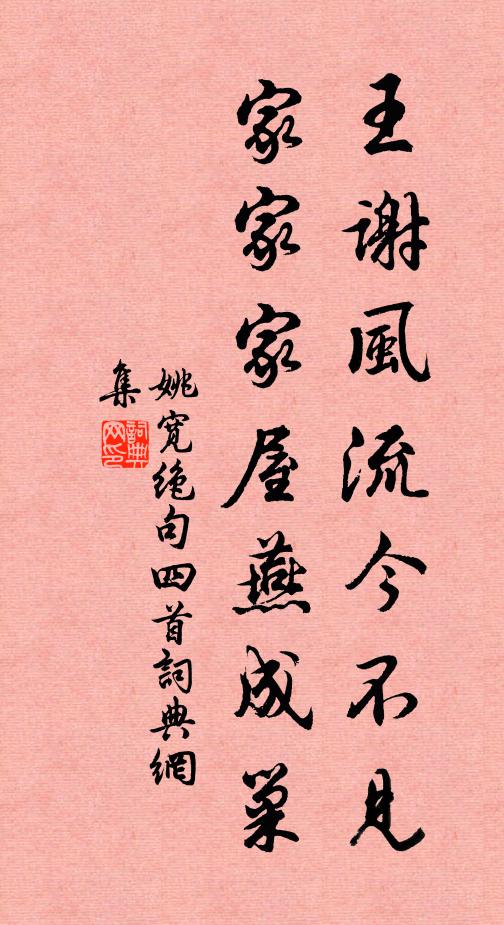 王謝風流今不見
家家家屋燕成巢
姚寬絕句四首詞典網
集
詞典
网印